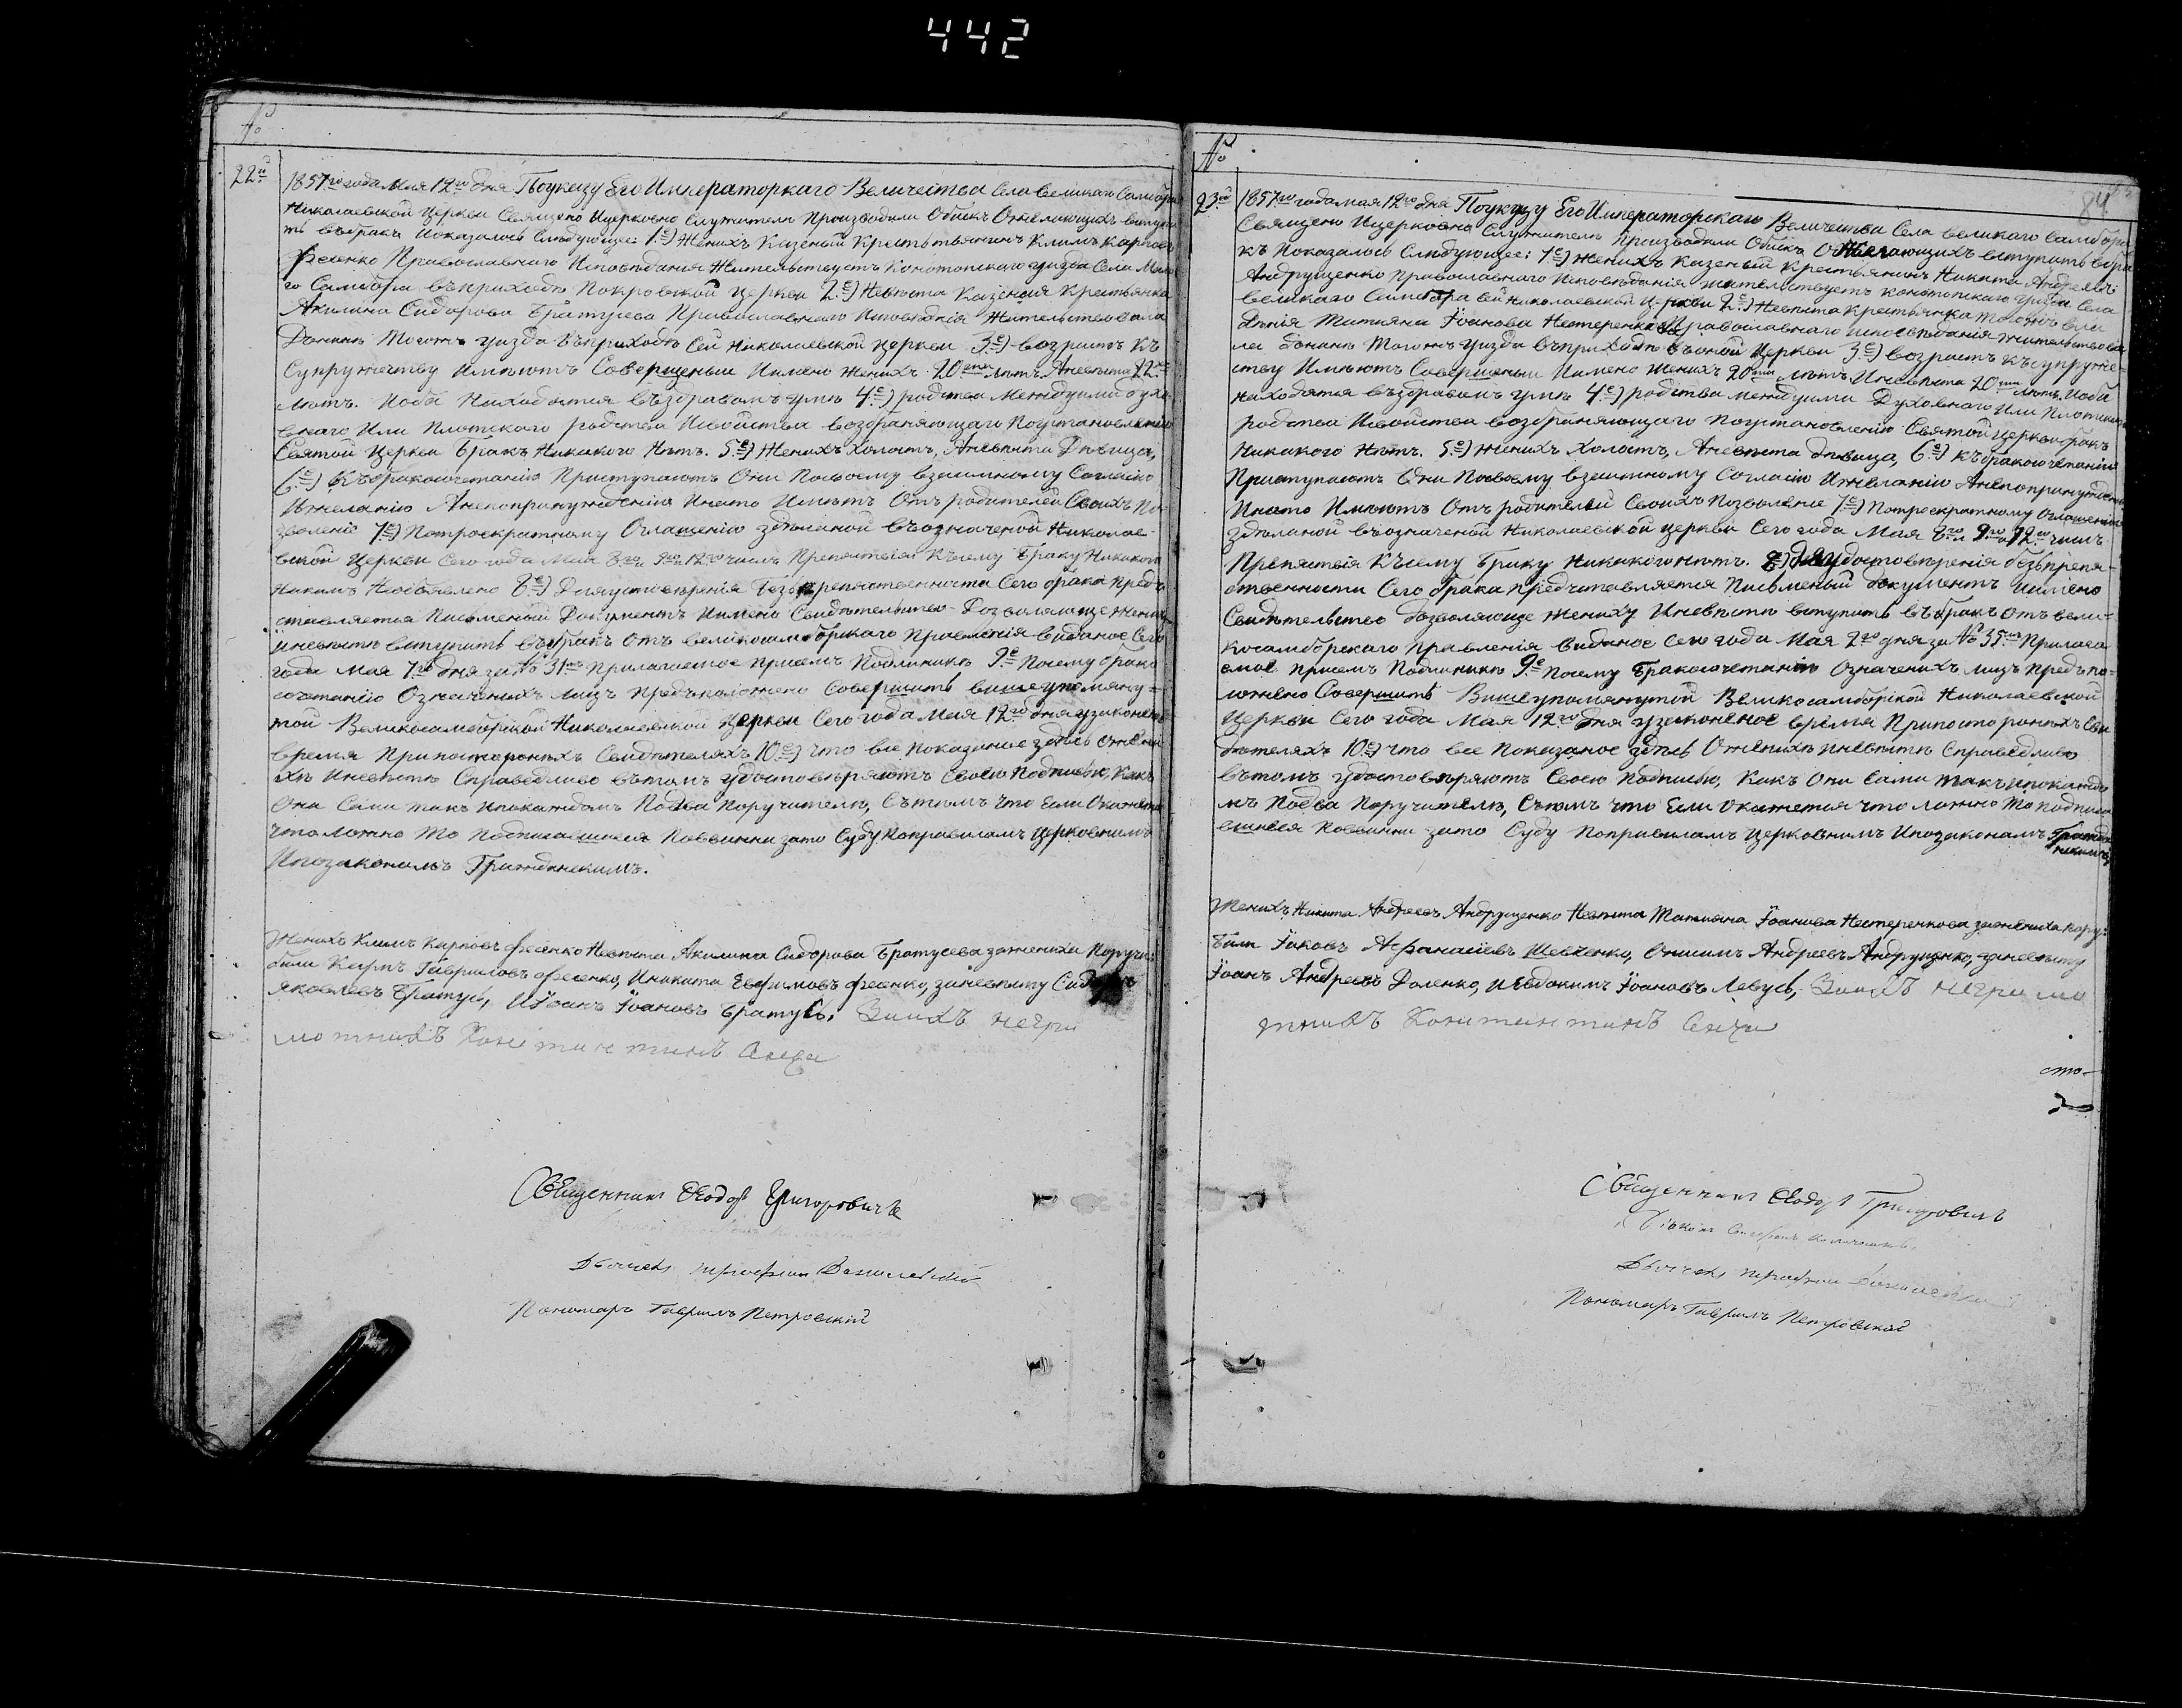 442
№
22й
1857го года Мая 12го дня По указу Его Императоркаго Величества Села Великаго Самбора
Николаевской Церкви Священо Ицерковно Служители Производили Обыскъ Ожелающихъ вступи
ть въбракъ Иоказалось Слѣдующее: 1е) Женихъ Казеный Крестьтьянинъ Климъ Карповъ
Фесенко Православнаго Исповѣдания Жительствуетъ Конотопскаго уизда Села Мала
го Самбора въприходѣ Покровской церкви 2е) Невѣста Казеная Крестьянка
Акилина Сидорова Братусева Православнаго Исповѣдания Жительствовала
Донынѣ Тогожъ уизда Въприходѣ Сей Николаевской церкви 3е) возрастъ Къ
Супружеству Имѣютъ Совершеный Имено Женихъ 20ти лѣтъ Аневѣста 22хъ
лѣтъ. Иоба Находятся въздравомъ умѣ 4е) родства Междуими духо
внаго Или Плотскаго родства Исвойства возбраняющаго Поустановлению
Святой Церкви Бракъ Никакого Нѣтъ. 5е) Женихъ Холостъ, Аневѣста Дѣвица,
6е) Къбракосочетанию Приступаютъ Они Посвоему взаимному Согласию
Ижеланию Анепопринуждения Инато Имѣютъ Отъ родителей Своихъ По
зволение 7е) Потроекратному Оглашению здѣланой въозначеной Николае-
вской церкви Сего года Мая 8го 9го и 12го числъ Препятствия Къэтому Браку Никакого
Никимъ Необъявлено 8е) Дляудостовѣрения Безъпрепятственности Сего брака Предъ
ставляется Письменый Документъ Имено Свидѣтельство Дозволяюще Жениху
Иневѣстѣ вступить въбракъ Отъ великосамборскаго Правления виданое Сего
года Мая 7го дня за № 31мъ Прилагаемое Присемъ Подлиникѣ 9е Посему брако
сочетанию Означеныхъ лицъ Предъположено Совершить вишеупомяну-
той Великосамборской Николаевской Церкви Сего года Мая 12го дня узаконеное
время Припостороныхъ Свидѣтеляхъ 10е) что все Показаное здѣсь Ожени
хѣ Иневѣстѣ Справедливо вътомъ удостовѣряютъ Своею Подписью, Какъ
Они Сами такъ Ипокаждомъ Подва Поручителю, Сътимъ что Если Окажется
что ложно то Подписавшиеся Повинни зато Суду Поправиламъ Церковнимъ
Ипозаконамъ Гражданскимъ.
Женихъ Климъ Карповъ Фесенко Невѣста Акилина Сидорова Братусева зажениха Поручи
били Гавриловъ Фесенко, Иникита Евфимовъ Фесенко, заневѣсту Сидоръ
Яковлевъ Братусь, Иоанъ Иоановъ Братусь. Заихъ негра
мотныхъ Константинъ
Священникъ Ѳеодоръ Григоровичъ
Дьячекъ
Пономарь Гаврилъ Петровский
№
84
23й
1857го года мая 12го дня По указу Его Императорскаго Величества Села великаго Самбора
Священо Ицерковно Служители Производили Обискъ Ожелающихъ вступить вбра
къ Показалось Слѣдующее: 1е) Женихъ Казеный Крестьянинъ Никита Андреевъ
Андрущенко Православнаго Исповѣдания жительствуетъ конотопскаго уизда Села
великаго Самбора Сей николаевской Церкви 2е) Невѣста Крестьянка
Татияна Иоанова Нестеренкова Православнаго исповѣдания жительствова
ла донынѣ Тогожъ уизда въприходѣ въоной Церкви 3е) возрастъ къ супруже-
ству Имѣютъ Совершеный Имено Женихъ 20ти лѣтъ Иневѣста 20ти лѣтъ. Иоба
находятся въздравомъ умѣ 4е) родства междуими Духовнаго Или Плотскаго
родства Исвойства возбраняющаго Поустановлению Святой церкви бракъ
Никакого Нѣтъ. 5е) Женихъ Холостъ, Аневѣста дѣвица, 6е) къбракосочетанию
Приступаютъ Они Посвоему взаимному Согласию Ижеланию Анепопринуждению
Инато Имѣютъ Отъ родителей Своихъ Позволение 7е) Потроекратному Оглашению
здѣланой въозначеной Николаевской церкви Сего года Мая 8го 9го и 12го числъ
Препятствия Къэтому Браку Никакого нѣтъ. 8е) Дляудостовѣрения безъпрепя-
ственности Сего брака Предъставляется Письменый документъ Имено
Свидѣтельство дозволяюще Жениху Иневѣстѣ вступить въбракъ Отъ вели-
косамборскаго Правления виданое Сего года Мая 2го дня за № 35мъ Прилага
емое присемъ Подлиникѣ 9е Посему Бракосочетанию Означеныхъ лицъ Предъпо-
ложено Совершить Вишеупомянутой Великосамборской Николаевской
Церкви Сего года Мая 12го дня узаконеное время Припостороныхъ Сви
дѣтеляхъ 10е) что все Показаное здѣсь Оженихѣ Иневѣстѣ Справедливо
вътомъ удостовѣряютъ Своею Подписью, Какъ Они Сами такъ Ипокаждо
мъ Подва Поручителю, Сътимъ что Если Окажется что ложно То подписа
вшиеся Повинни зато Суду Поправиламъ Церковнимъ Ипозаконамъ Гражда
нскимъ
Женихъ Никита Андреевъ Андрущенко Невѣста Татияна Иоанова Нестеренкова зажениха пору-
били Иаковъ Афанасиевъ Шевченко, Онисимъ Андреевъ Андрущенко, заневѣсту
Иоанъ Андреевъ Доленко, иЕвдокимъ Иоановъ Левусь, Заихъ неграмо
тныхъ Константинъ
сто-
Священникъ Ѳеодоръ Григоровичъ
Дьячекъ
Пономарь Гаврилъ Петровский